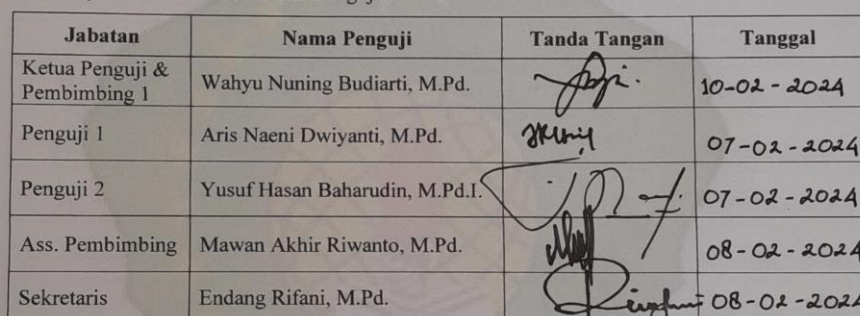 Jabatan Nama Penguji Tanda Tangan Tanggal
Ketua Penguji &
Pembimbing 1 Wahyu Nuning Budiarti, M.Pd. 10-02-2024
Penguji 1 Aris Naeni Dwiyanti, M.Pd. 07-02-2024
Penguji 2 Yusuf Hasan Baharudin, M.Pd.I. 07-02-2024
Ass. Pembimbing Mawan Akhir Riwanto, M.Pd. 08-02-2024
Sekretaris Endang Rifani, M.Pd. 08-02-2024